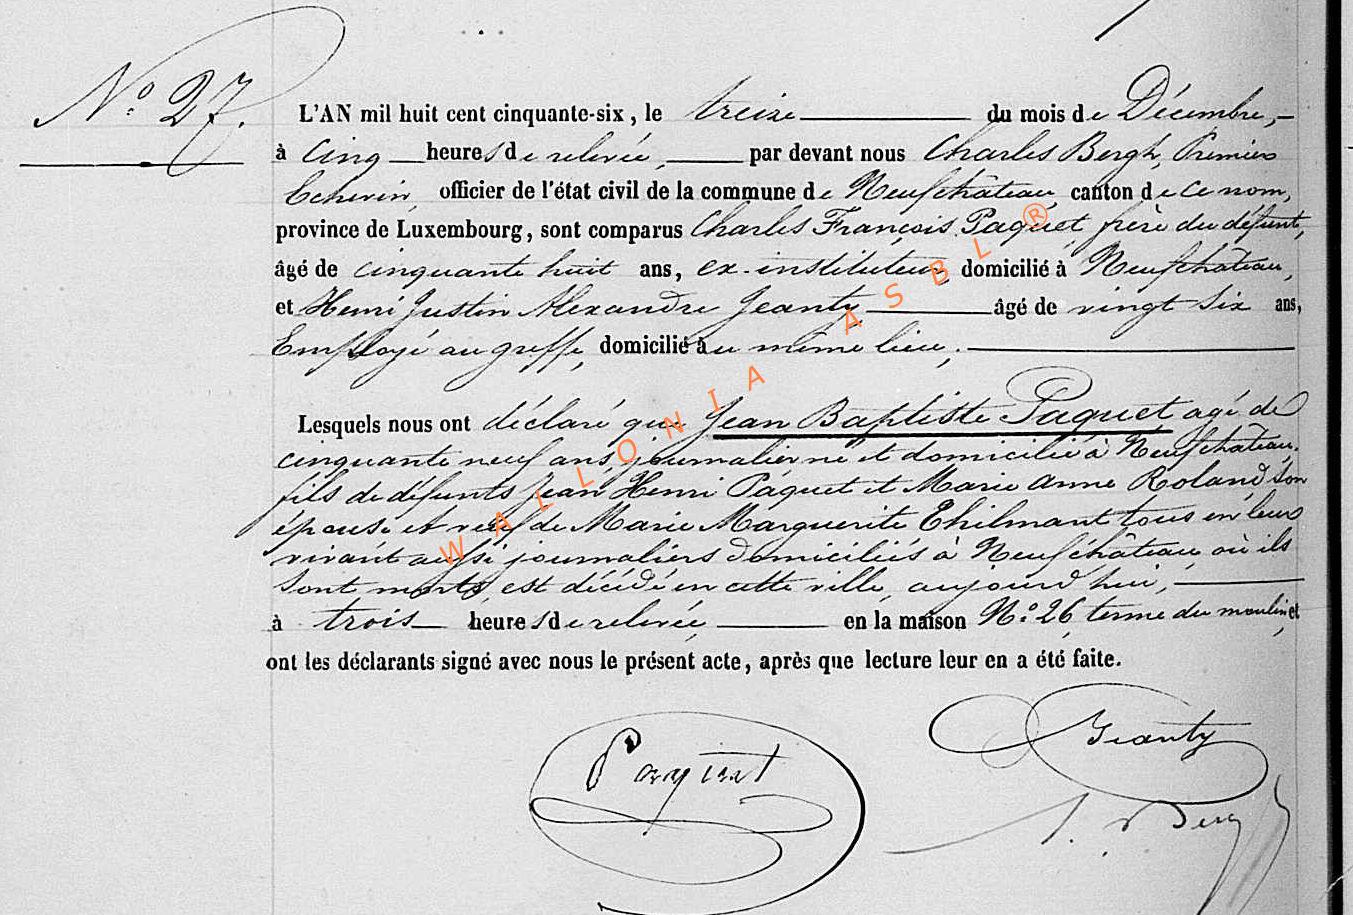 N° 27.
L'AN mil huit cent cinquante-six, le treize du mois de Décembre,
à cinq heures de relevée, par devant nous Charles Bergh, Premier
Echevin, officier de l'état civil de la commune de Neufchâteau, canton de ce nom,
province de Luxembourg, sont comparus Charles François Paquet frère du défunt,
âgé de cinquante huit ans, ex-instituteur, domicilié à Neufchâteau,
et Henri Justin Alexandre Jeanty âgé de vingt six ans,
Employé au greffe, domicilié au même lieu.
Lesquels nous ont déclaré que Jean Baptiste Paquet agé de
cinquante neuf ans, journalier né et domicilié à Neufchâteau,
fils de défunts Jean Henri Paquet et Marie Anne Roland son
épouse et veuf de Marie Marguerite Thilmant tous en leur
vivant aussi journaliers domiciliés à Neufchâteau où ils
sont morts, est décédé en cette ville, aujourd'hui,
à trois heures de relevée, en la maison N° 26, terme du moulin, et
ont les déclarants signé avec nous le présent acte, après que lecture leur en a été faite.
Paquet
Jeanty
WALLONIA ASBL ®